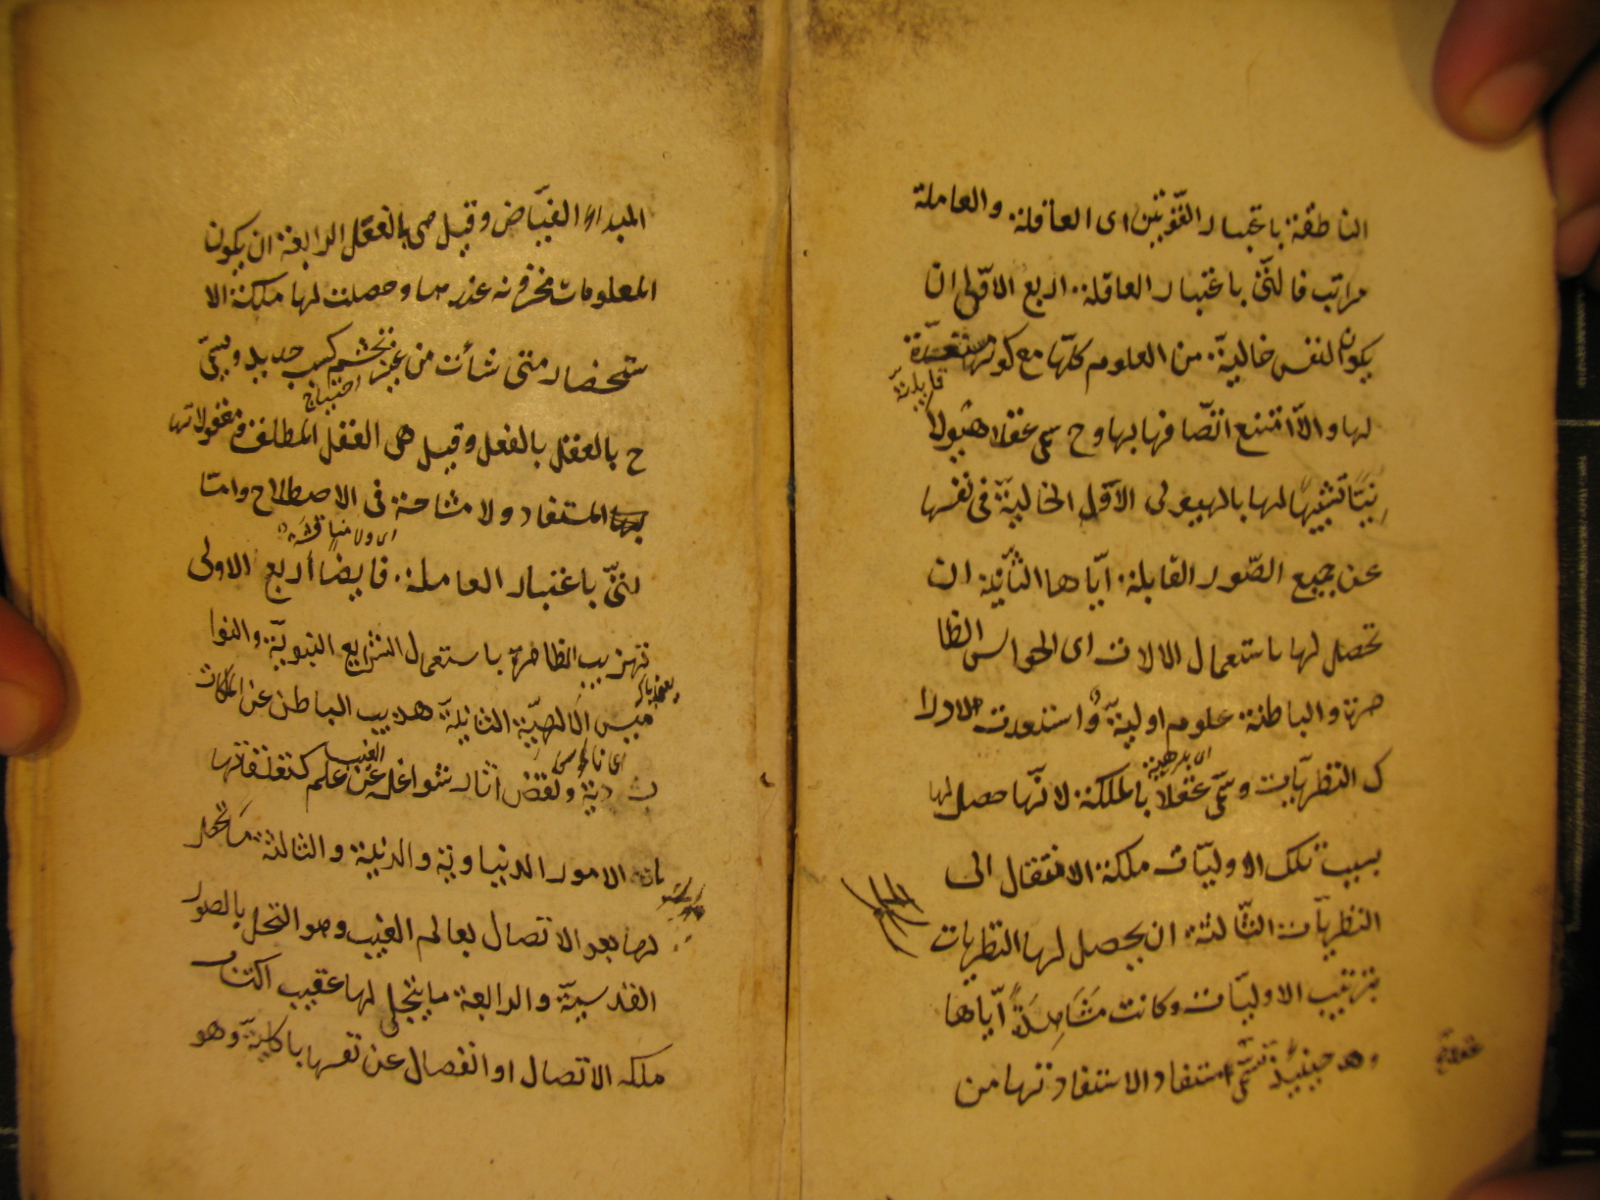 الناطقة باعتبار القوّتين اى العاقلة والعاملة
مراتب فالتى باعتبار العاقلة اربع الاولى ان
يكون النفس خالية من العلوم كلّها مع كونها مستعدّة
قابلة
لها والّا امتنع اتّصافها بها وح سمى عقلا هيولا
نيّا تشبيها لها بالهيولى الاوّل الخالية فى نفسها
عن جميع الصّور القابلة ايّاها الثانية ان
تحصل لها باستعمال الالات اى الحواس الظا
هرة والباطنة علوم اولية واستعدت لادرا
اى بدهية
ك النظريات وسمى عقلا بالملكة لانّها حصل لها
بسبب تلك الاوليّات ملكة الانتقال الى
النظريات الثّالثة ان يحصل لها النظريات
بترتيب الاوليّات وكانت مشاهدة ايّاها
وهى حينئذ تسمى مستفاد الاستفادتها من
المبداء الفيّاض وقيل هى بالعقل الرابعة ان يكون
المعلومات مخزونة عندها وحصلت لها ملكة الا
ستحضار متى شأت من غير تجشم كسب جديد ويسمّى
احتياج
ح بالعقل بالفعل وقيل هى العقل المطلق ومعقولاتها
المستفاد ولا مشاحة فى الاصطلاح وامّا
اى ولا مناقشة
لتى باعتبار العاملة فايضا أربع الاولى
تهذيب الظاهرة باستعمال الشرايع النبوية والنوا
ميس الالهيّة الثانية هذيب الباطن عن الملكات
الردية ونقض آثار شواغله عن علم كتعلقاتها
الغيب
بات الامور الدنياوية والدنية والثالثة ما تحصل
لها بعد الاتصال بعالم الغيب وهو التحلى بالصور
القدسيّة والرابعة ما ينجلى لها عقيب اكتسا
ملكه الاتصال او انفصال عن نفسها بالكلية وهو